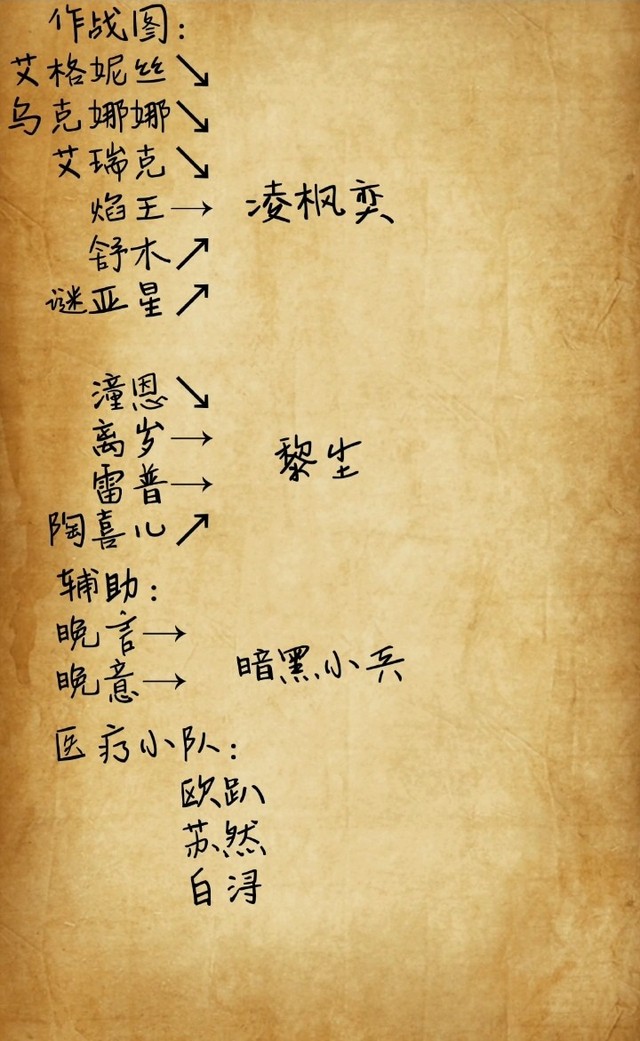 作战图:
艾格妮丝↘
乌克娜娜↘
艾瑞克↘
焰王→ 凌枫奕
舒木↗
谜亚星↗
潼恩↘
离岁→ 黎尘
雷普→
陶喜儿↗
辅助:
晚言→
晚意→ 暗黑小兵
医疗小队:
欧趴
苏然
白浔